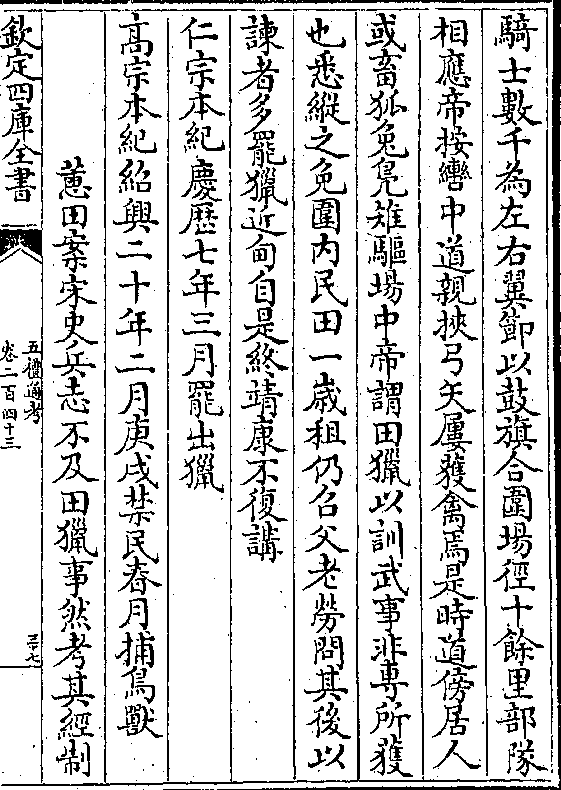 騎士數千為左右翼節以鼓旗合圍場徑十餘里部隊
相應帝按轡中道親挾弓矢屢獲禽焉是時道傍居人
或畜狐兔鳧雉驅場中帝謂田獵以訓武事非專所獲
也悉縱之免圍内民田一歲租仍召父老勞問其後以
諫者多罷獵近甸自是終靖康不復講
仁宗本紀慶歷七年三月罷出獵
髙宗本紀紹興二十年二月庚戌禁民春月捕鳥獸
蕙田案宋史兵志不及田獵事然考其經制
欽定四庫全書
五禮通考
卷二百四十三
三十七